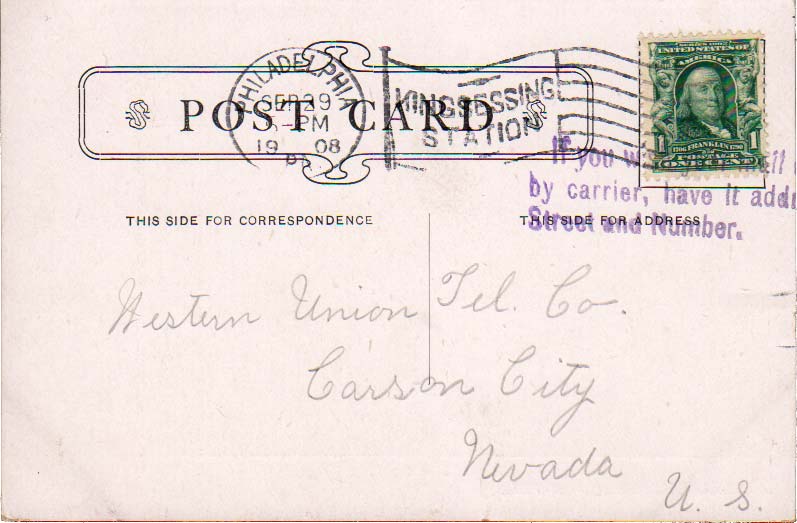 PHILADELPHIA
SEP 29
PM
19 08
PA.
KINGSESSING
STATION
POST CARD
SERIES 1902
UNITED STATES OF
AMERICA
1 1
1706 FRANKLIN 1790
POSTAGE
ONE CENT
If you
by carrier, have it
Street and Number.
THIS SIDE FOR CORRESPONDENCE
THIS SIDE FOR ADDRESS
Western Union Tel. Co.
Carson City
Nevada
U. S.